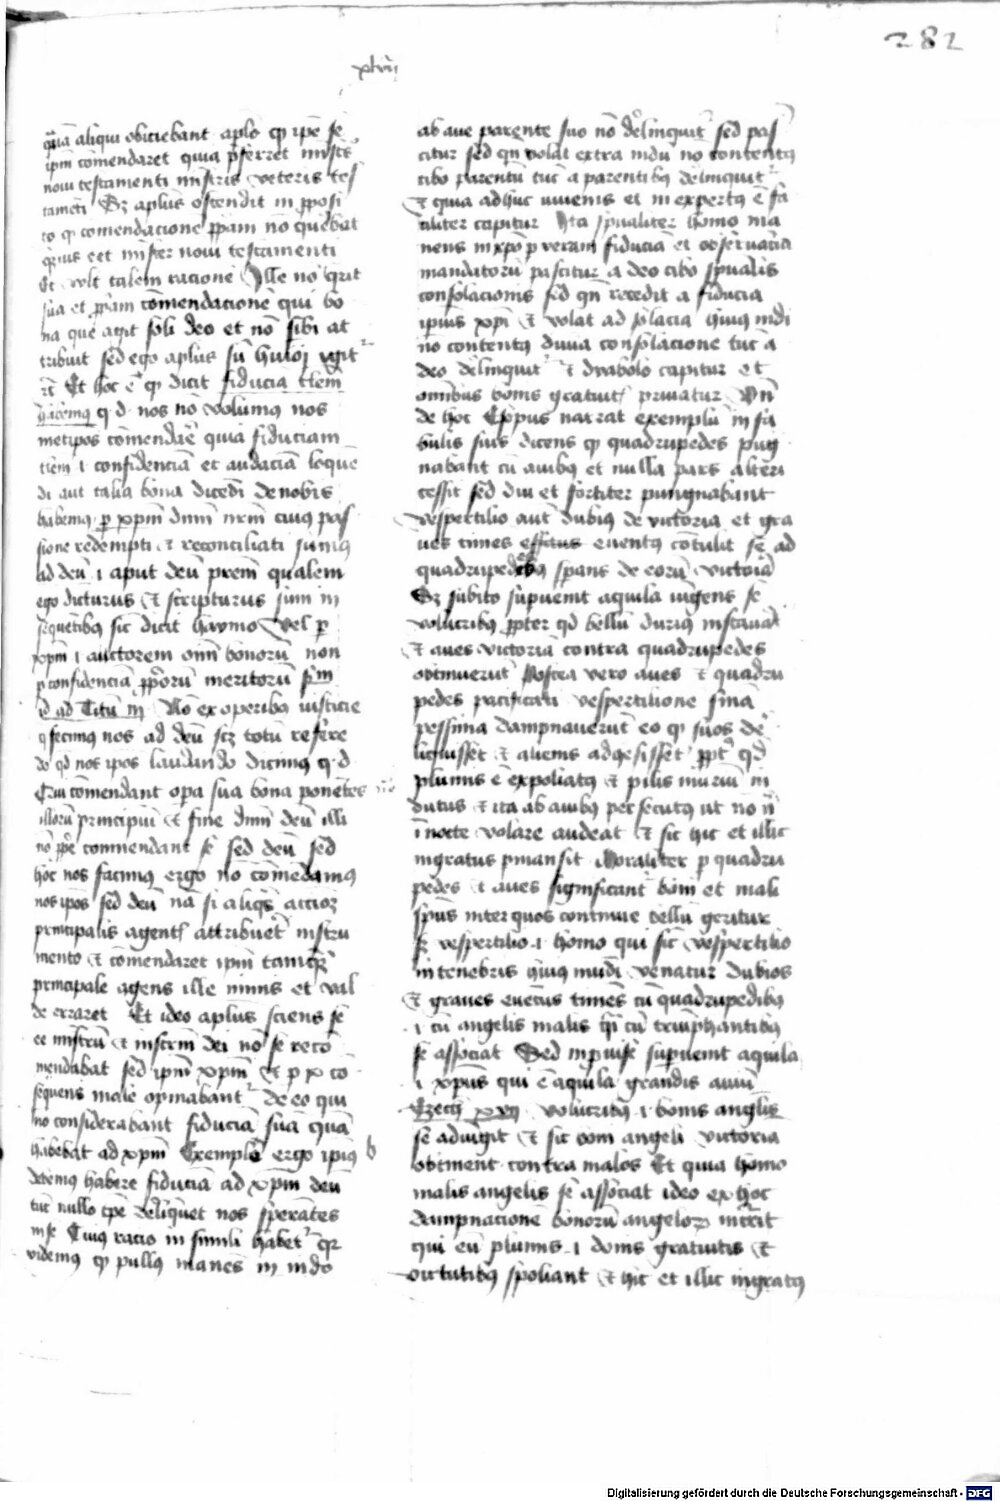 282
xlvii
quia aliqui obiciebant aplō qꝫ ipē se
ipm cōmendaret quia pferret
noui testamenti mīstris veteris tes
tamēti Sꝫ aplus ostendit in pposi
to qꝫ comendacione ppam nō quebat
eēt mīster noui testamenti
Et vlt talem racionē Ille nō qrit
sua et ppam cōmendacionē qui bo
na que agit soli deo et nō sibi at
tribuit sed ego aplus sū huiꝯ
Et hoc ē qꝫ dicit fiduciā tlem
habemꝯ q d nos nō volumꝯ nos
metipos cōmendāe quia fiduciam
tlem i confidenciā et audaciā loquē
di aut talia bona dicēdi de nobis
habemꝯ p xpm dnm nrm cuiꝯ pas
sione redempti et reconciliati sumꝯ
ad deū i aput deū prem qualem
ego dicturus et scripturus sum in
sequētibꝯ sic dicit haymo Vel p
xpm i auctorem oīm bonorū non
p confidenciā pporū meritorū
ad Titū iii Nō ex operibꝯ iusticie
q fecimꝯ nos ad deū scꝫ totū refere
do qd nos ipos laudando dicimꝯ q d
Qui cōmendant opa sua bona ponētes
illorū principiū et finē dnm deū illi
nō ppe commendant se sed deū sed
hoc nos facimꝯ ergo nō cōmēdamꝯ
nos ipos sed deū nā si aliqs
principalis agentꝭ attribueret instru
mento et cōmendaret ipm tamqꝫ
principale agens ille nimis et val
de erraret Et ideo aplus sciens se
eē mīstrū et instrm dei nō se reco
mendabat sed ipm xpm Et p co
sequens male opinabantꝰ de eo qui
nō considerabant fiduciā suā quā
habebat ad xpm Exemplo ergo ipiꝯ b
debemꝯ habere fiduciā ad xpm deū
tūc nullo tpe delīquet nos sperātes
in se Cuiꝯ racio in simili habetꝰ qꝫ
videmꝯ qꝫ pullꝯ manēs in nido
ab aue parente suo nō delinquitꝰ sed pas
citur sed qn volat extra nidū nō contentꝯ
cibo parentū tūc a parentibꝯ delinquitꝰ
et quia adhuc iuuenis et inexpertꝯ ē fa
ciliter capitur Ita spualiter homo ma
nens in xpo p veram fiduciā et obseruaciā
mandatorū pascitur a deo cibo spualis
consolacionis sed qn recedit a fiducia
ipius xpi et volat ad solacia huiꝯ mūdi
nō contentꝯ diuīa consolacione tūc a
deo delinquitꝰ et dyabolo capitur et
omnibus bonis gratuitꝭ priuatur Vn
de hoc Esopus narrat exemplū in fa
bulis suis dicens qꝫ quadrupedes pug
nabant cū auibꝯ et nulla pars alteri
cessit sed diu et fortiter pungnabant
vespertilio aut dubiꝯ de victoria et gra
ues timēs effectus euentꝯ cōtulit se ad
quadrupedibꝯ sperans de eorū victoria
Sꝫ subito supuenit aquila iūgens se
volucribꝯ ppter qd bellū duriꝯ
et aues victoriā contra quadrupedes
obtinuerūt Postea vero aues et quadru
pedes pacificati vespertilionē sniā
pessima dampnauerūt eo qꝫ suos de
liquisset et alienis adhesisset ppt qd
plumis ē expoliatꝯ et pilis muriū in
dutus et ita ab auibꝯ persecutꝯ ut nō n
i nocte volare audeat et sic hic et illic
ingratus pmansit Moraliter p quadru
pedes et aues significant boni et mali
spūs inter quos continue bellū geritur
sꝫ vespertilio i homo qui sic vespertilio
in tenebris huiꝯ mūdi venatur dubios
et graues euentus timēs cū quadrupedibꝯ
i cū angelis malis cū triūphantibꝯ
se associat Sed inpuise supuenit aquila
i xpus qui ē aquila grandis auiū
Ezech xvii volucribꝯ i bonis anglis
se adiūgit et sic boni angeli victoria
obtinent contra malos Et quia homo
malis angelis se associat ideo ex hoc
dampnacionē bonorū angeloꝝ incurrit
qui eū plumis i donis gratuitis et
virtutibꝯ spoliant et hic et illic ingratꝯ
Digitalisierung gefördert durch die Deutsche Forschungsgemeinschaft - DFG